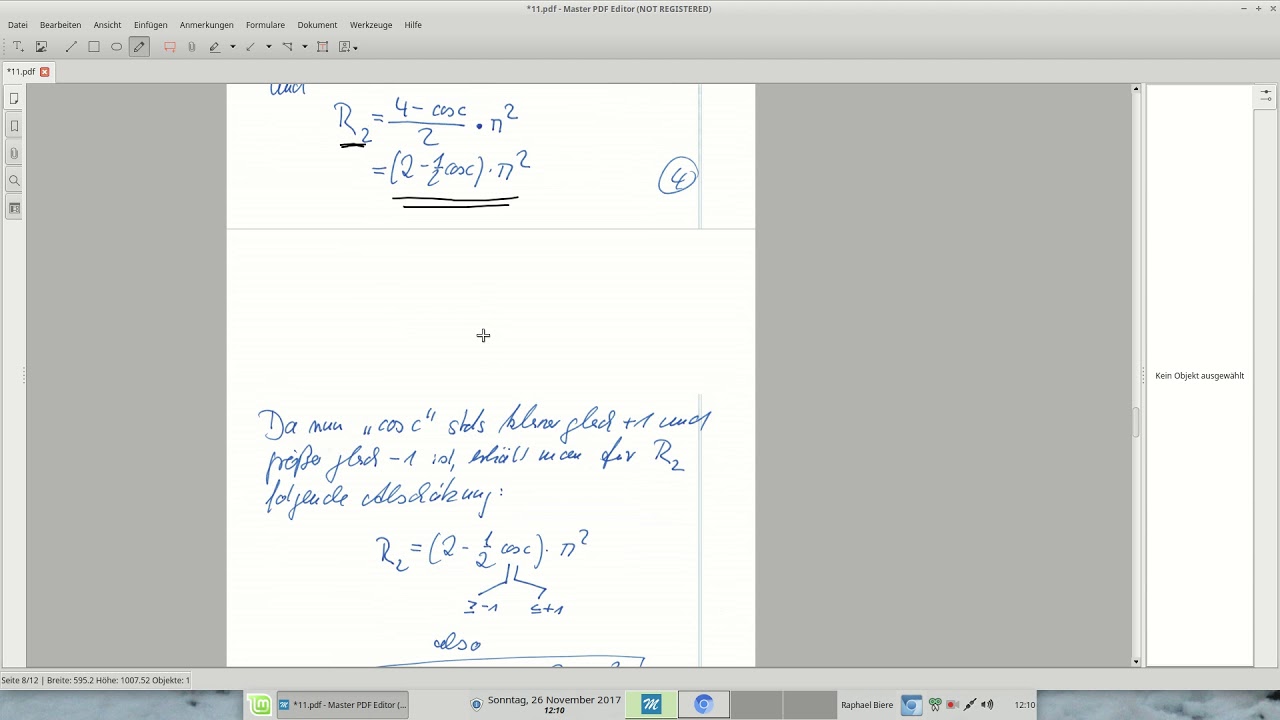 *11.pdf - Master PDF Editor (NOT REGISTERED)
Datei Bearbeiten Ansicht Einfügen Anmerkungen Formulare Dokument Werkzeuge Hilfe
*11.pdf
und
R₂ = (4 - cos c)/2 · π²
= (2 - 1/2 cos c) · π²
4
Da nun „cos c“ stets kleiner gleich +1 und
größer gleich -1 ist, erhält man für R₂
folgende Abschätzung:
R₂ = (2 - 1/2 cos c) · π²
≥ -1 ≤ +1
also
Kein Objekt ausgewählt
Seite 8/12 | Breite: 595.2 Höhe: 1007.52 Objekte: 1
*11.pdf - Master PDF Editor (...
Sonntag, 26 November 2017
12:10
Raphael Biere
12:10